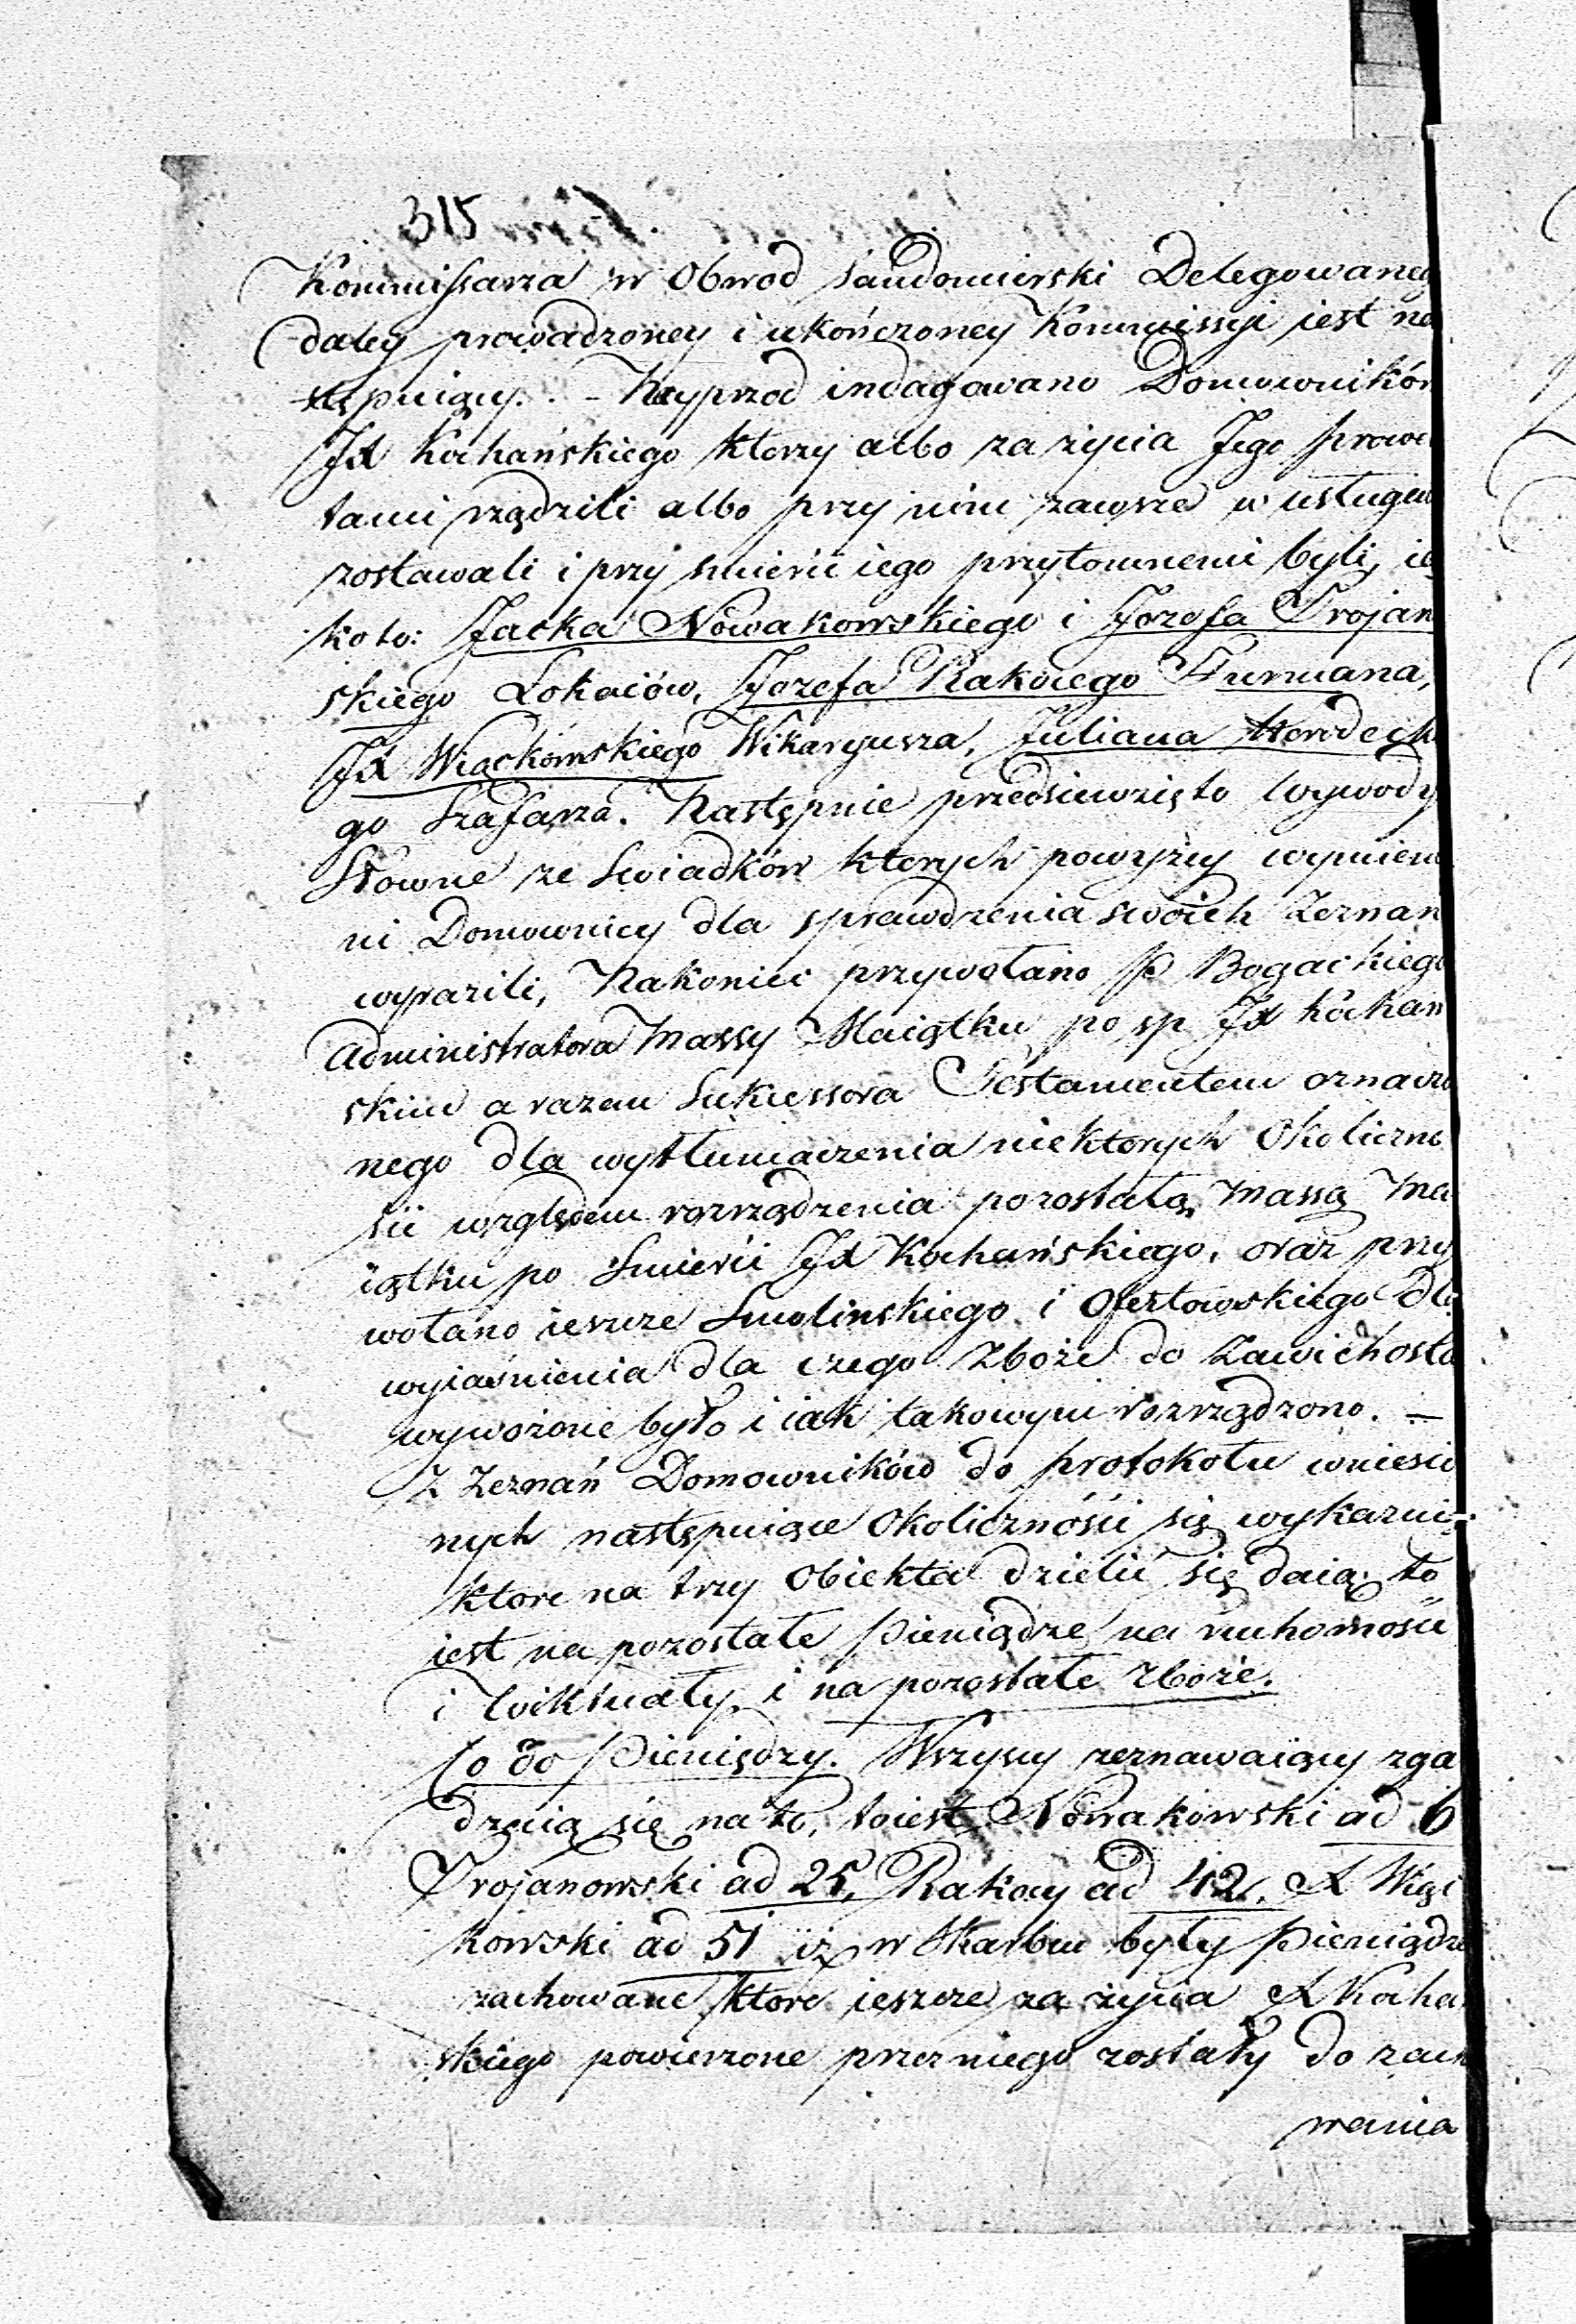 315
Kommissarza w Obwod Sandomirski Delegowaneg
daley prowadzoney i ukończoney Kommissyi jest na
stępuiący. - Nayprzod indagowano Domowników
JX Kochańskiego ktorzy albo za życia Jego prowe
tami rządzili albo przy nim zawsze w usługach
zostawali i przy smierci iego przytomnemi byli, ia
ko to: Jacka Nowakowskiego i Jozefa Trojan
skiego Lokaiów, Jozefa Rakocego Furmana,
JX Wiąckowskiego Wikaryusza, Juliana Horodeck
go Szafarza. Następnie przedsiewzięto wywody
Słowne ze Swiadków ktorych powyżey wymieni
ni Domownicy dla sprawdzenia swoich Zeznan
wyrazili, Nakoniec przywołano P. Bogackiego
Administratora Massy Maiątku po sp JX Kochan
skim a razem Sukcessora Testamentem oznaczo
nego dla wytłumaczenia niektorych Okoliczno
sci względem rozrządzenia pozostałą Massą Ma
iątku po Smierci JX Kochańskiego, oraz przy
wołano ieszcze Smolinskiego i Ofertowskiego dla
wyiaśnienia dla czego Zboże do Zawichosta
wywożone było i iak takowym rozrządzono. —
Z Zeznań Domowników do protokołu wniesio
nych następuiące Okoliczności się wykazuią
ktore na trzy Obiekta dzielić się daią, to
iest na pozostałe Pieniądze, na ruchomości
i Wiktuały, i na pozostałe Zboże.
Co do Pieniędzy. Wszyscy zeznawaiący zga
dzaią się na to, toiest Nowakowski ad 6
Trojanowski ad 25, Rakocy ad 42, X Więc
kowski ad 51 iż w Skarbcu były Pieniądze
zachowane, ktore ieszcze za życia X Kochań
skiego powierzone przez niego zostały do zacho
wania